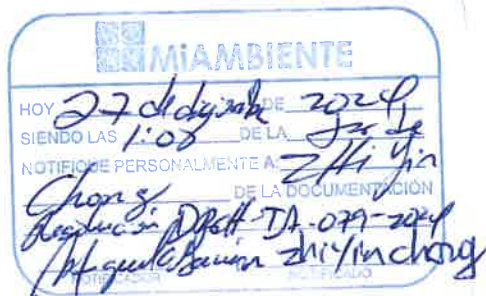 MiAMBIENTE
HOY 27 de diciembre DE 2024
SIENDO LAS 1:08 DE LA tarde
NOTIFIQUE PERSONALMENTE A: Zhi Yin
Chong DE LA DOCUMENTACIÓN
Resolución DRCH-IA-079-2024
Zhi Yin chong
NOTIFICADOR NOTIFICADO